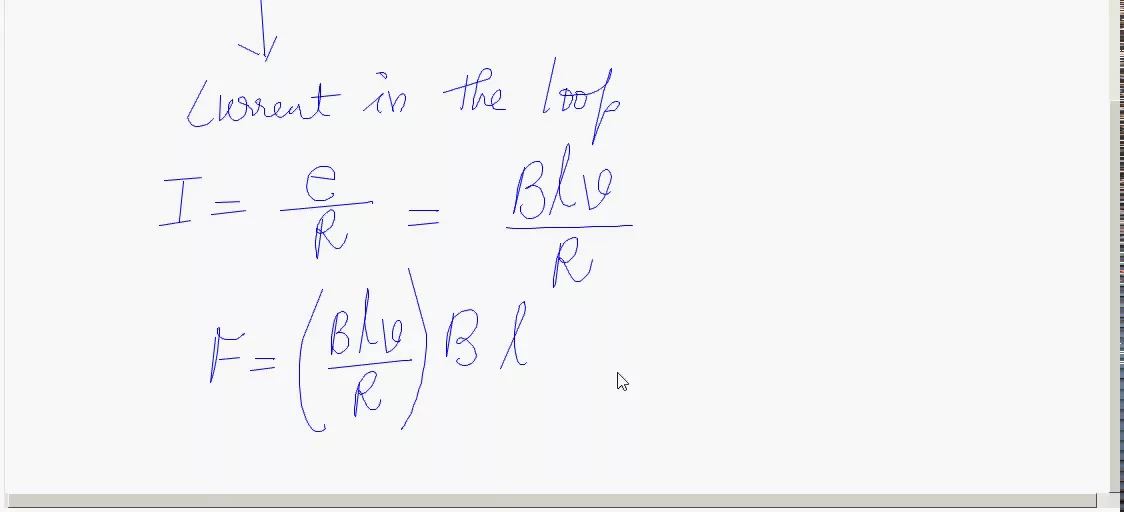 Current in the loop
I = e/R = Blv/R
F = (Blv/R) B l